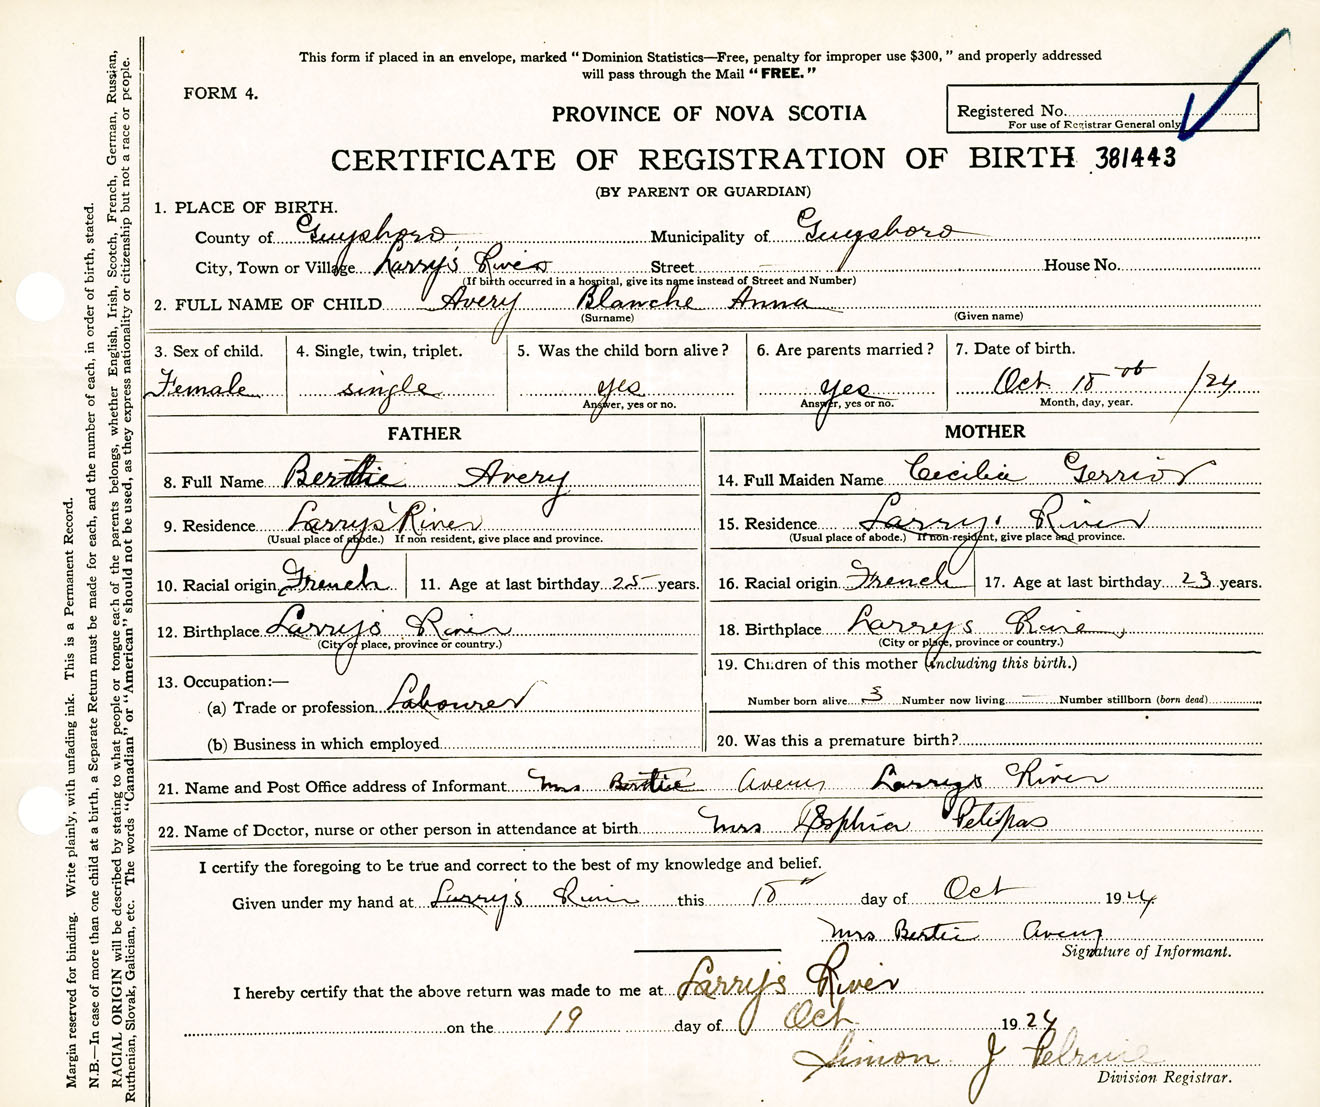 This form if placed in an envelope, marked "Dominion Statistics—Free, penalty for improper use $300," and properly addressed
will pass through the Mail "FREE."
FORM 4.
PROVINCE OF NOVA SCOTIA
Registered No.
For use of Registrar General only
CERTIFICATE OF REGISTRATION OF BIRTH 381443
(BY PARENT OR GUARDIAN)
1. PLACE OF BIRTH.
County of Guysboro Municipality of Guysboro
City, Town or Village Larry's River Street House No.
(If birth occurred in a hospital, give its name instead of Street and Number)
2. FULL NAME OF CHILD Avery Blanche Anna
(Surname) (Given name)
3. Sex of child. 4. Single, twin, triplet. 5. Was the child born alive? 6. Are parents married? 7. Date of birth.
Female single yes yes Oct /24
Answer, yes or no. Answer, yes or no. Month, day, year.
FATHER
8. Full Name Bertie Avery
9. Residence Larrys River
(Usual place of abode.) If non resident, give place and province.
10. Racial origin French 11. Age at last birthday 25 years.
12. Birthplace Larry's River
(City or place, province or country.)
13. Occupation:—
(a) Trade or profession Labourer
(b) Business in which employed
MOTHER
14. Full Maiden Name Cecilia Gerrior
15. Residence Larry's River
(Usual place of abode.) If non-resident, give place and province.
16. Racial origin French 17. Age at last birthday 23 years.
18. Birthplace Larrys River
(City or place, province or country.)
19. Children of this mother (including this birth.)
Number born alive 3 Number now living Number stillborn (born dead)
20. Was this a premature birth?
21. Name and Post Office address of Informant Mrs Bertie Avery Larrys River
22. Name of Doctor, nurse or other person in attendance at birth Mrs Sophia Petipas
I certify the foregoing to be true and correct to the best of my knowledge and belief.
Given under my hand at Larry's River this day of Oct 1924
Mrs Bertie Avery
Signature of Informant.
I hereby certify that the above return was made to me at Larry's River
on the 19 day of Oct 1924
Simon J
Division Registrar.
Margin reserved for binding. Write plainly, with unfading ink. This is a Permanent Record.
N.B.—In case of more than one child at a birth, a Separate Return must be made for each, and the number of each, in order of birth, stated.
RACIAL ORIGIN will be described by stating to what people or tongue each of the parents belongs, whether English, Irish, Scotch, French, German, Russian,
Ruthenian, Slovak, Galician, etc. The words "Canadian" or "American" should not be used, as they express nationality or citizenship but not a race or people.